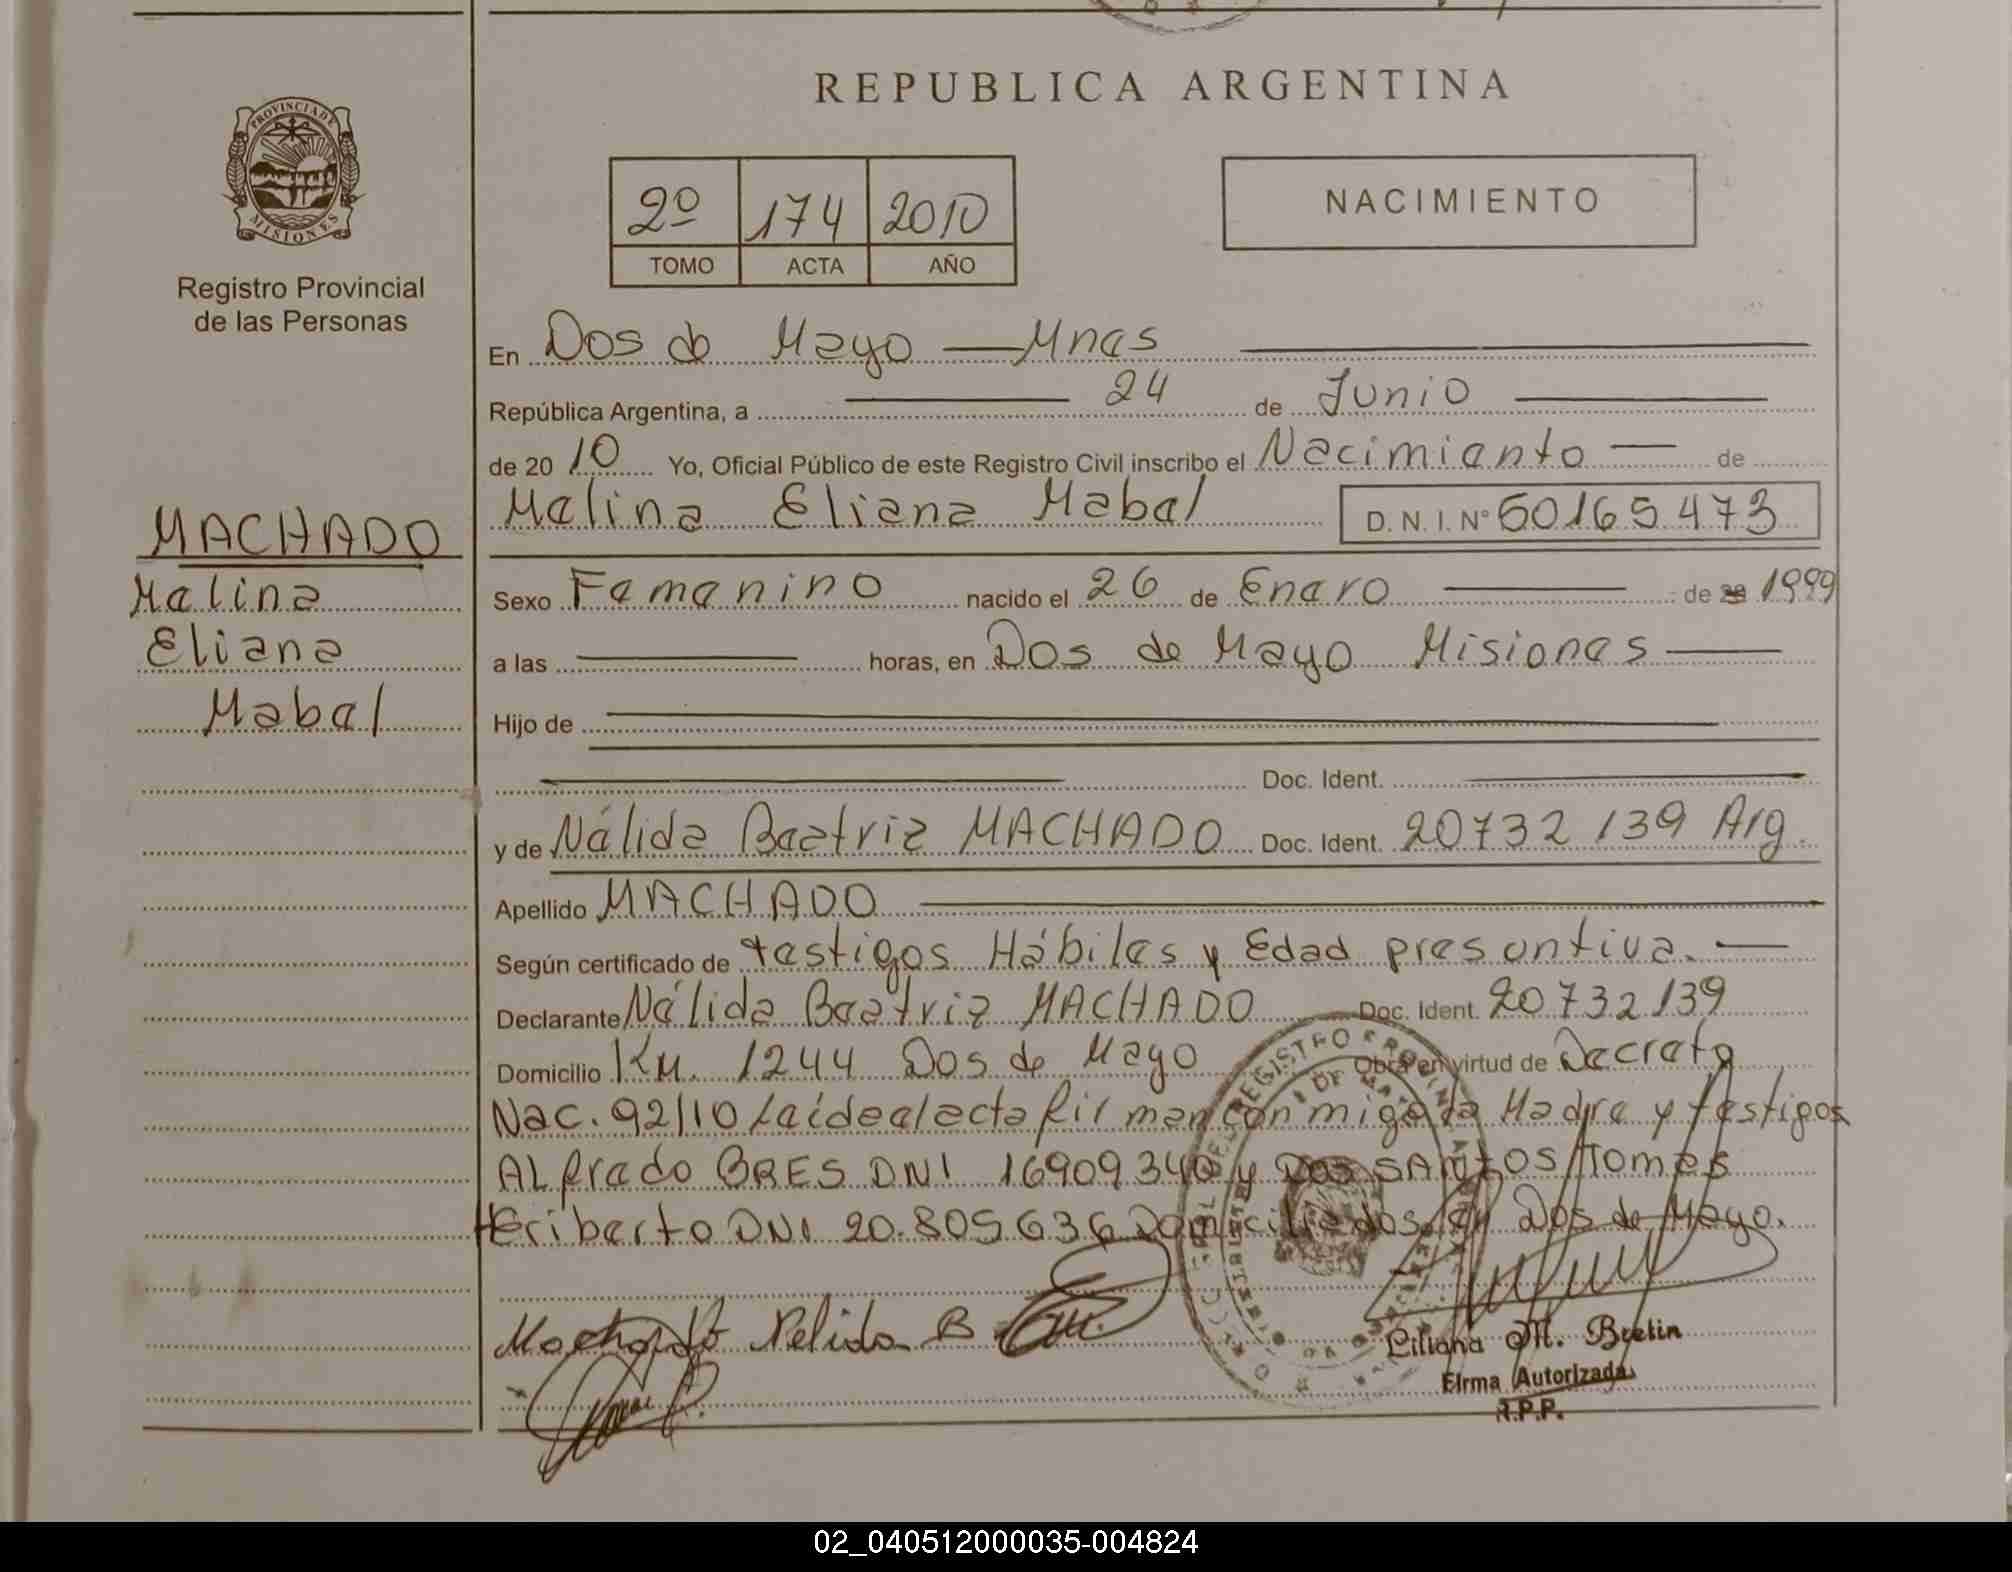 REPUBLICA ARGENTINA
PROVINCIA DE MISIONES
Registro Provincial
de las Personas
2º 174 2010
TOMO ACTA AÑO
NACIMIENTO
En Dos de Mayo — Mnes
República Argentina, a 24 de Junio
de 2010 Yo, Oficial Público de este Registro Civil inscribo el Nacimiento — de
Melina Eliana Mabel D. N. I. Nº 50165473
MACHADO
Melina
Eliana
Mabel
Sexo Femenino nacido el 26 de Enero de 1999
a las horas, en Dos de Mayo Misiones
Hijo de
Doc. Ident.
y de Nélida Beatriz MACHADO Doc. Ident. 20732139 Arg.
Apellido MACHADO
Según certificado de testigos Hábiles y Edad presuntiva.
Declarante Nélida Beatriz MACHADO Doc. Ident. 20732139
Domicilio Km. 1244 Dos de Mayo Obra en virtud de Decreto
Nac. 92/10 Leída el acta firman conmigo la Madre y testigos
ALfredo BRES DNI 16909340 y Dos SANTOS Tomes
Heriberto DNI 20.805636 Domiciliados en Dos de Mayo.
Machado Nelida B
Liliana M. Brelin
Firma Autorizada
R.P.P.
02_040512000035-004824